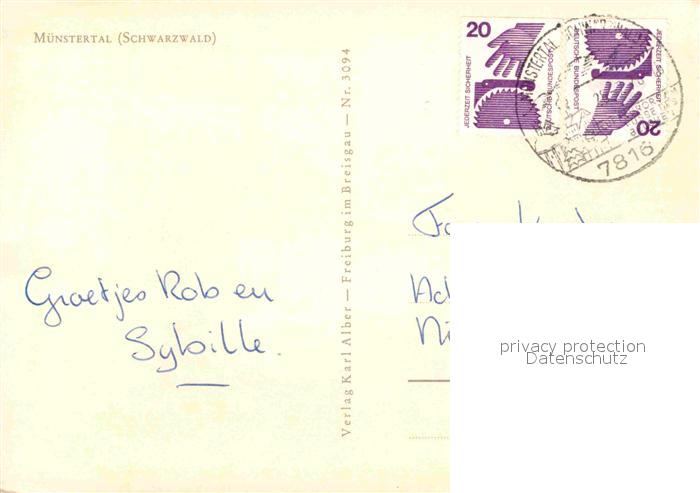 MÜNSTERTAL (SCHWARZWALD)
20
JEDERZEIT SICHERHEIT
DEUTSCHE BUNDESPOST
JEDERZEIT SICHERHEIT
DEUTSCHE BUNDESPOST
20
7816
Verlag Karl Alber — Freiburg im Breisgau — Nr. 3094
Groetjes Rob en
Sybille.
privacy protection
Datenschutz